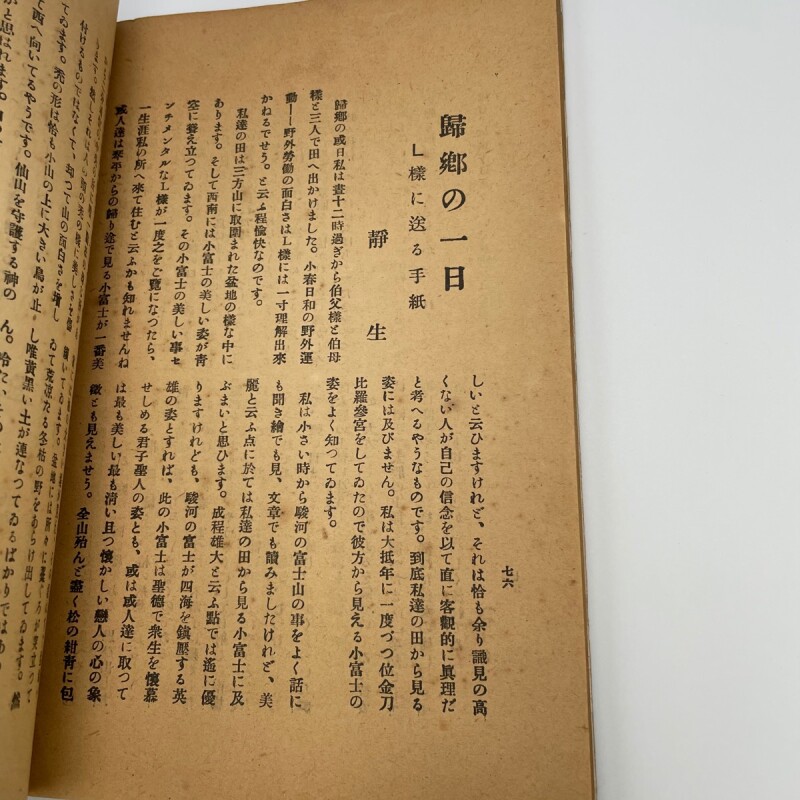 歸鄕の一日
L樣に送る手紙
靜生
歸鄕の或日私は晝十二時過ぎから伯父樣と伯母
樣と三人で田へ出かけました。小春日和の野外運
動――野外勞働の面白さはL樣には一寸理解出來
かねるでせう。と云ふ程愉快なのです。
私達の田は三方山に取圍まれた盆地の樣な中に
あります。そして西南には小富士の美しい姿が靑
空に聳え立つてゐます。その小富士の美しい事セ
ンチメンタルなL樣が一度之をご覽になつたら、
一生涯私の所へ來て住むと云ふかも知れませんね
或人達は琴平からの歸り途で見る小富士が一番美
しいと云ひますけれど、それは恰も余り識見の高
くない人が自己の信念を以て直に客觀的に眞理だ
と考へるやうなものです。到底私達の田から見る
姿には及びません。私は大抵年に一度づつ位金刀
比羅參宮をしてゐたので彼方から見える小富士の
姿をよく知つてゐます。
私は小さい時から駿河の富士山の事をよく話に
も聞き繪でも見、文章でも讀みましたけれど、美
麗と云ふ点に於ては私達の田から見る小富士に及
ぶまいと思ひます。成程雄大と云ふ點では遙に優
りますけれども、駿河の富士が四海を鎭壓する英
雄の姿とすれば、此の小富士は聖德で衆生を懷慕
せしめる君子聖人の姿とも、或は或人達に取つて
は最も美しい最も淸い且つ懷かしい戀人の心の象
徵とも見えませう。全山殆んど盡く松の紺靑に包
七六
付けるものではなくて、却つて山の面白さを增し
てゐます。禿の形は恰も小山の上に大きい鳥が止
と西へ向いてるやうです。仙山を守護する神の
かと思はれます。
ゐて荒凉たる冬枯の野をあらけ出してゐます。然
し唯黃黑い土が連なつてゐるばかりではあ